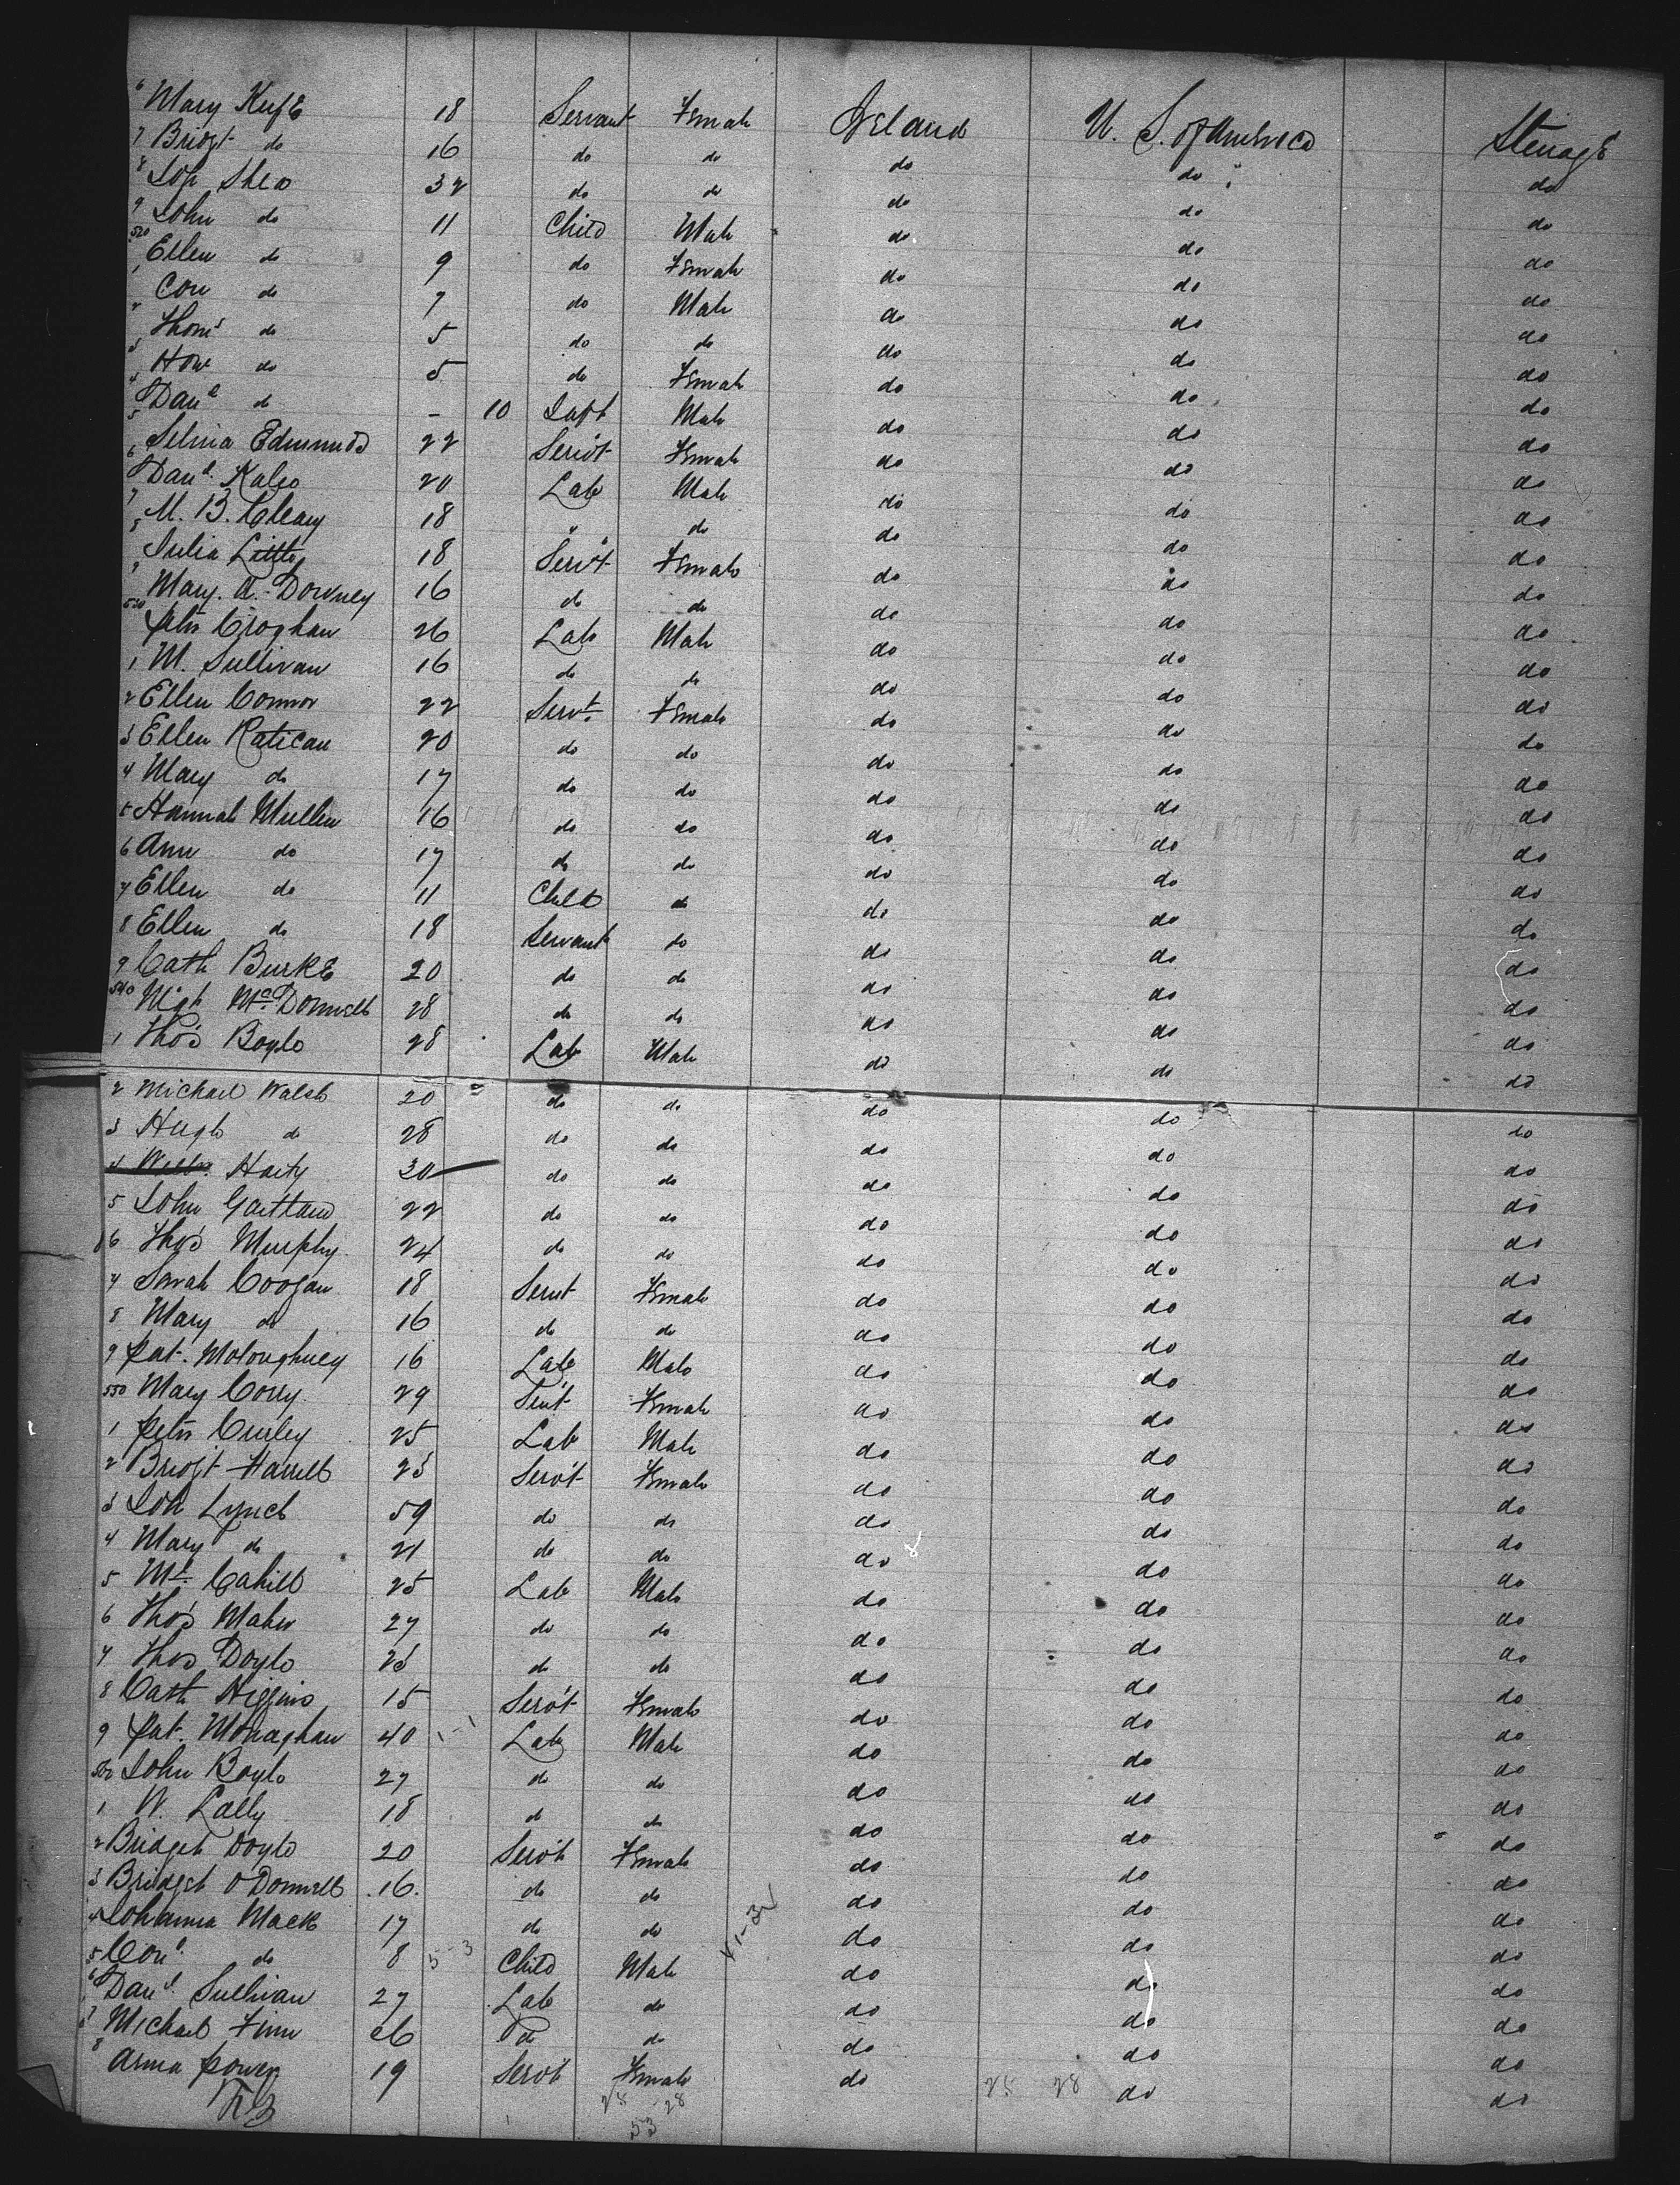 6 Mary Keefe 18 Servant Female Ireland U. S. of America Steerage
7 Bridgt do 16 do do do do do
8 Joh Shea 32 do do do do do
9 John do 11 Child Male do do do
520 Ellen do 9 do Female do do do
1 Con do 7 do Male do do do
2 Thoms do 5 do do do do do
3 do 5 do Female do do do
4 Danl do - 10 Inft Male do do do
5 Selina Edmunds 22 Servt Female do do do
6 Danl. 20 Lab Male do do do
7 M. B. Cleary 18 " do do do do
8 Julia 18 Servt Female do do do
9 Mary. A. Downey 16 do do do do do
530 Peter Croghan 26 Lab Male do do do
1 M. Sullivan 16 do do do do do
2 Ellen Connor 22 Servt. Female do do do
3 Ellen Ratican 20 do do do do do
4 Mary do 17 do do do do do
5 Hannah Mullen 16 do do do do do
6 Ann do 17 do do do do do
7 Ellen do 11 Child do do do do
8 Ellen do 18 Servant do do do do
9 Cath Burke 20 do do do do do
540 Mgt McDonnell 28 do do do do do
1 Thos Boyle 28 Lab Male do do do
2 Michael Walsh 20 do do do do do
3 Hugh do 28 do do do do do
4 Willm. Harty 30 do do do do do
5 John Gartland 22 do do do do do
6 Thos Murphy 24 do do do do do
7 Sarah Coogan 18 Servt Female do do do
8 Mary do 16 do do do do do
9 Pat. Moloughney 16 Lab Male do do do
550 Mary Corry 29 Servt Female do do do
1 Peter Curley 25 Lab Male do do do
2 Bridgt Farrell 23 Servt Female do do do
3 Joh Lynch 59 do do do do do
4 Mary do 21 do do do do do
5 Ml. Cahill 25 Lab Male do do do
6 Thos Maher 27 do do do do do
7 Thos Doyle 23 do do do do do
8 Cath Higgins 15 Servt Female do do do
9 Pat. Monaghan 40 1-1 Lab Male do do do
560 John Boyle 27 do do do do do
1 W. Lally 18 do do do do do
2 Bridget Doyle 20 Servt Female do do do
3 Bridget O Donnell 16. do do do do do
4 Johanna Mack 17 do do 41-32 do do do
5 Conl. do 8 5-3 Child Male do do do
6 Danl. Sullivan 27 Lab do do do do
7 Michael Finn 26 do do do do do
8 Anna Power 19 Servt Female do do do
53 25 28 25 28
53